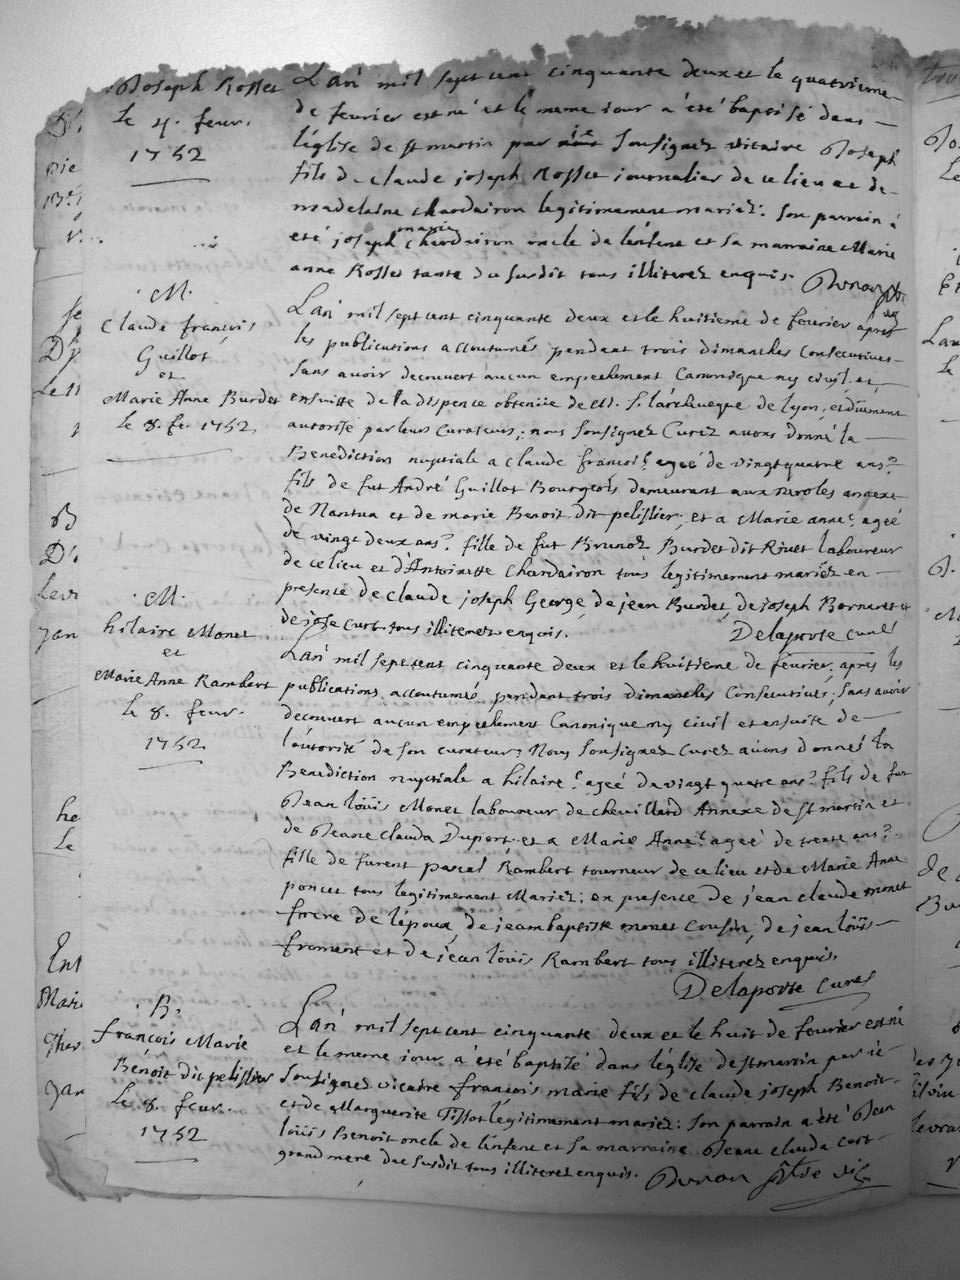 Joseph Rosset
Le 4. feur.
1752
L'an mil sept cent cinquante deux et le quatrieme
de feurier est né et le meme iour a été baptisé dans
l'église de st martin par ie sousigner vicaire Joseph
fils de claude joseph Rosset journalier de ce lieu et de
madelaine chardairon legitimement mariez: son parrain a
eté joseph marie chardairon oncle de l'enfent et sa marraine Marie
anne Rosset tante du susdit tous illiterez enquis.
M.
Claude françois
Guillot
et
Marie Anne Burdet
le 8. fe. 1752
L'an mil sept cent cinquante deux et le huitieme de feurier apres
les publications accoutumés pendant trois dimanches consecutives
sans avoir decouvert aucun empechement Canonique ny civil et
ensuitte de la dispence obtenüe de M. l'archeueque de lyon, et düement
autorise par leurs curateurs; nous sousignez Curez auons donné la
Benediction nuptiale a claude francois ageé de vingt quatre ans
fils de fut André Guillot Bourgeois demeurant aux neroles annexe
de Nantua et de marie Benoit dit pelissier; et a Marie anne ageé
de vingt deux ans fille de fut Brunoz Burdet dit Riuet laboureur
de ce lieu et d'Antoinette Chardairon tous legitimement mariéz en
presence de claude joseph George, de jean Burdet, de joseph Bornaret et
de curt tous illiterez enquis. Delaporte curé
M.
hilaire Monet
et
Marie Anne Rambert
le 8. feur.
1752
L'an mil sept cent cinquante deux et le huitieme de feurier, apres les
publications accoutumé pendant trois dimanches Consecutiues, sans avoir
decouvert aucun empechement Canonique ny civil et ensuite de
l'autorité de son curateur, Nous sousignez Curez auons donnés la
Benediction nuptiale a hilaire ageé de vingt quatre ans fils de fut
Jean loüis Monet laboureur de cheuillard Annexe de st martin et
de Jeane Clauda Duport et a Marie Anne ageé de trente ans
fille de furent pascal Rambert tourneur de ce lieu et de Marie Anne
poncet tous legitimement Mariez; en presence de jean claude monet
frere de l'époux, de jean baptiste monet cousin, de jean loüis
froment et de jean loüis Rambert tous illiterez enquis.
Delaporte curé
B.
françois Marie
Benoit dit pelissier
Le 8. feur.
1752
L'an mil sept cent cinquante deux et le huit de feurier est né
et le meme jour a été baptisé dans l'église de st martin par ie
sousignez vicaire francois marie fils de claude joseph Benoit
et de Marguerite Tissot legitimement mariez: son parrain a été Jean
loüis Benoit oncle de l'enfent et sa marraine Jeane clauda curt
grand mere du susdit tous illiterez enquis.